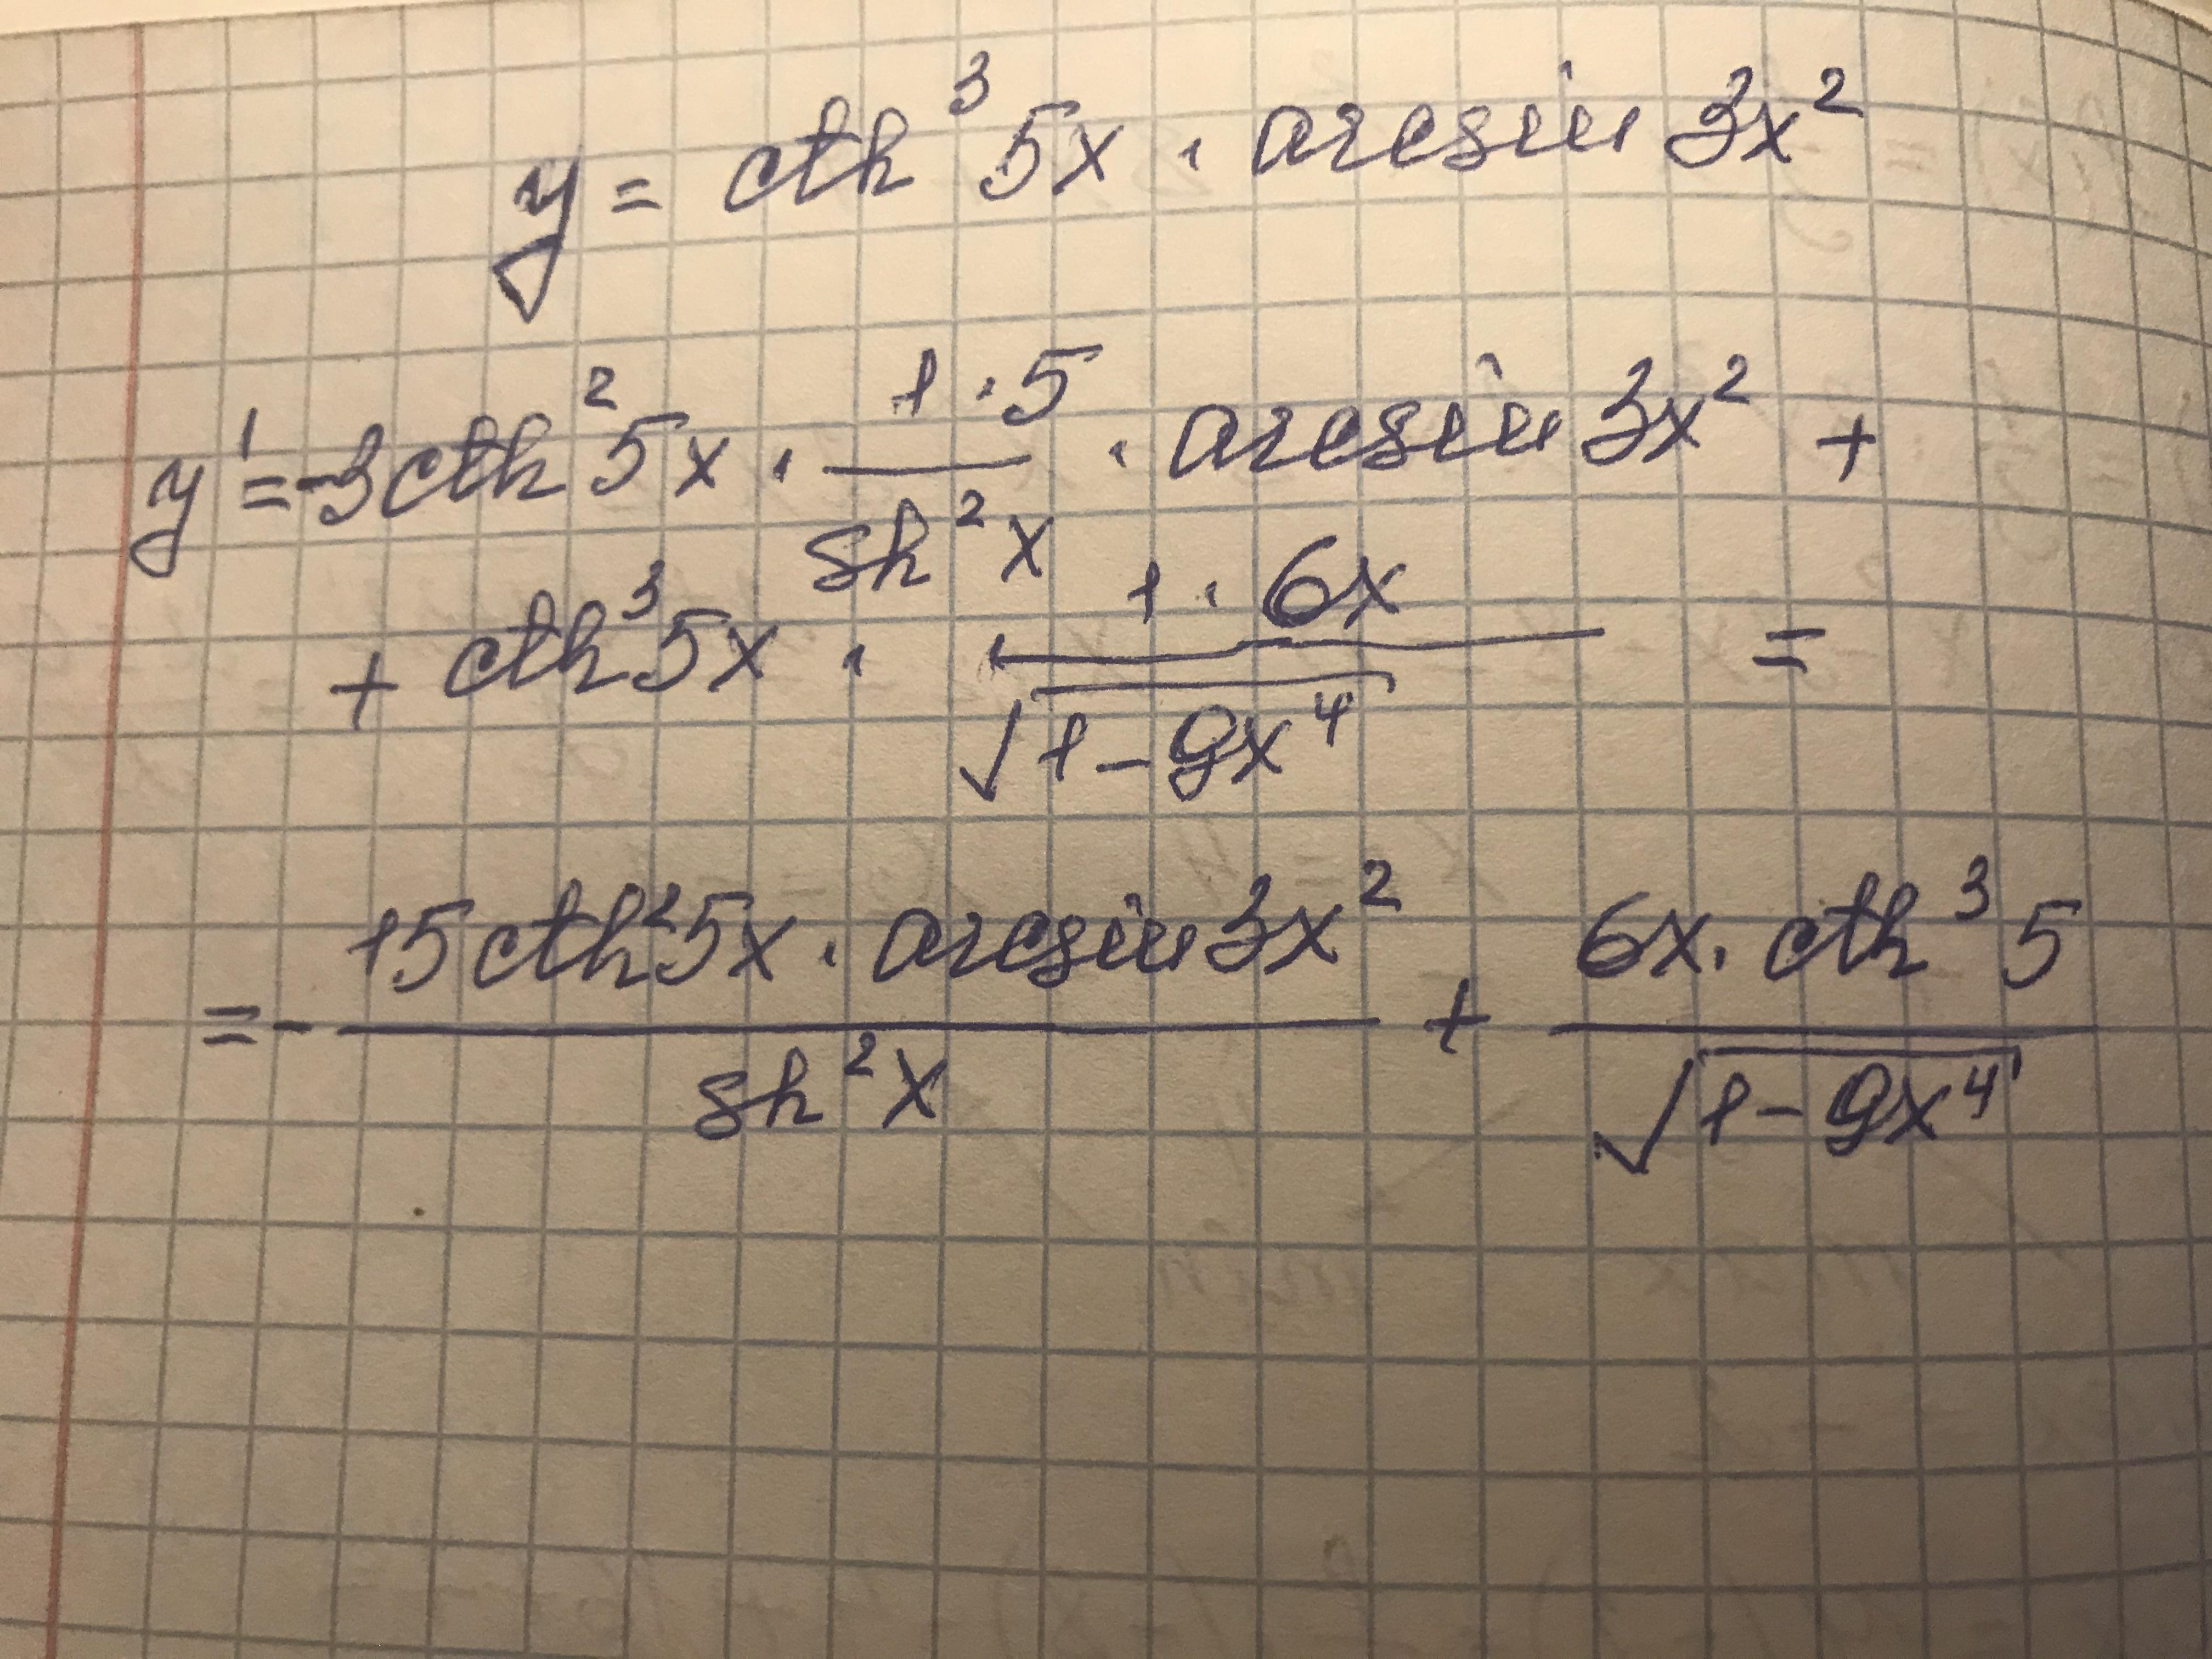 y = cth³ 5x · arcsin 3x²
y' = -3cth² 5x · 1·5/sh² x · arcsin 3x² +
+ cth³ 5x · 1·6x/√(1-9x⁴) =
= - 15cth² 5x · arcsin 3x²/sh² x + 6x · cth³ 5/√(1-9x⁴)